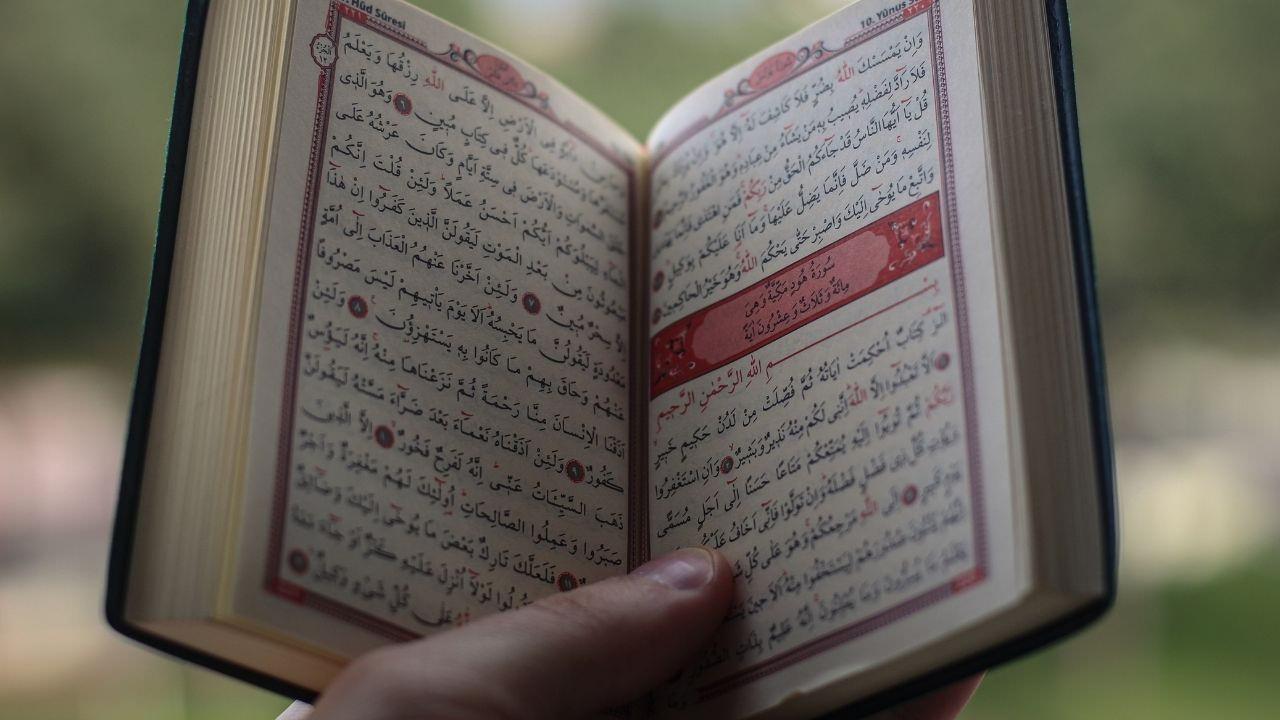 10. Yûnus S
وَاِنْ يَمْسَسْكَ اللّٰهُ بِضُرٍّ فَلَا كَاشِفَ لَهُٓ اِلَّا هُوَ وَاِنْ
فَلَا رَٓادَّ لِفَضْلِه۪ يُص۪يبُ بِه۪ مَنْ يَشَٓاءُ مِنْ عِبَادِه۪ وَهُوَ الْغَفُورُ الرَّح۪يمُ
قُلْ يَٓا اَيُّهَا النَّاسُ قَدْ جَٓاءَكُمُ الْحَقُّ مِنْ رَبِّكُمْ فَمَنِ اهْتَدٰى فَاِنَّمَا
لِنَفْسِه۪ وَمَنْ ضَلَّ فَاِنَّمَا يَضِلُّ عَلَيْهَا وَمَٓا اَنَا عَلَيْكُمْ بِوَك۪يلٍ
وَاتَّبِعْ مَا يُوحٰٓى اِلَيْكَ وَاصْبِرْ حَتّٰى يَحْكُمَ اللّٰهُ وَهُوَ خَيْرُ الْحَاكِم۪ينَ
سُورَةُ هُودٍ مَكِّيَّةٌ وَهِيَ
مِائَةٌ وَثَلَاثٌ وَعِشْرُونَ اٰيَةً
بِسْمِ اللّٰهِ الرَّحْمٰنِ الرَّح۪يمِ
الٓرٰ كِتَابٌ اُحْكِمَتْ اٰيَاتُهُ ثُمَّ فُصِّلَتْ مِنْ لَدُنْ حَك۪يمٍ خَب۪يرٍ
١ اَلَّا تَعْبُدُٓوا اِلَّا اللّٰهَ اِنَّن۪ي لَكُمْ مِنْهُ نَذ۪يرٌ وَبَش۪يرٌ ٢ وَاَنِ اسْتَغْفِرُوا
رَبَّكُمْ ثُمَّ تُوبُٓوا اِلَيْهِ يُمَتِّعْكُمْ مَتَاعًا حَسَنًا اِلٰٓى اَجَلٍ مُسَمًّى
كُلَّ ذ۪ي فَضْلٍ فَضْلَهُ وَاِنْ تَوَلَّوْا فَاِنّ۪ٓي اَخَافُ عَلَيْكُمْ
كَب۪يرٍ ٣ اِلَى اللّٰهِ مَرْجِعُكُمْ وَهُوَ عَلٰى كُلِّ
صُدُورَهُمْ لِيَسْتَخْفُوا مِنْهُ اَلَا ح۪ينَ
يُسِرُّونَ وَمَا يُعْلِنُونَ اِنَّهُ عَل۪يمٌ بِذَاتِ الصُّدُورِ
Hûd Sûresi
اَلْجُزْءُ ١٢
فِي الْاَرْضِ اِلَّا عَلَى اللّٰهِ رِزْقُهَا وَيَعْلَمُ
وَمُسْتَوْدَعَهَا كُلٌّ ف۪ي كِتَابٍ مُب۪ينٍ ٦ وَهُوَ الَّذ۪ي
السَّمٰوَاتِ وَالْاَرْضَ ف۪ي سِتَّةِ اَيَّامٍ وَكَانَ عَرْشُهُ عَلَى
الْمَٓاءِ لِيَبْلُوَكُمْ اَيُّكُمْ اَحْسَنُ عَمَلًا وَلَئِنْ قُلْتَ اِنَّكُمْ
مَبْعُوثُونَ مِنْ بَعْدِ الْمَوْتِ لَيَقُولَنَّ الَّذ۪ينَ كَفَرُٓوا اِنْ هٰذَٓا
اِلَّا سِحْرٌ مُب۪ينٌ ٧ وَلَئِنْ اَخَّرْنَا عَنْهُمُ الْعَذَابَ اِلٰٓى اُمَّةٍ
مَعْدُودَةٍ لَيَقُولُنَّ مَا يَحْبِسُهُ اَلَا يَوْمَ يَأْت۪يهِمْ لَيْسَ مَصْرُوفًا
عَنْهُمْ وَحَاقَ بِهِمْ مَا كَانُوا بِه۪ يَسْتَهْزِؤُ۫نَ ٨ وَلَئِنْ
اَذَقْنَا الْاِنْسَانَ مِنَّا رَحْمَةً ثُمَّ نَزَعْنَاهَا مِنْهُ اِنَّهُ لَيَؤُ۫سٌ
كَفُورٌ ٩ وَلَئِنْ اَذَقْنَاهُ نَعْمَٓاءَ بَعْدَ ضَرَّٓاءَ مَسَّتْهُ لَيَقُولَنَّ
ذَهَبَ السَّيِّـَٔاتُ عَنّ۪ي اِنَّهُ لَفَرِحٌ فَخُورٌ ١٠ اِلَّا الَّذ۪ينَ
صَبَرُوا وَعَمِلُوا الصَّالِحَاتِ اُو۬لٰٓئِكَ لَهُمْ مَغْفِرَةٌ وَاَجْرٌ
١١ فَلَعَلَّكَ تَارِكٌ بَعْضَ مَا يُوحٰٓى اِلَيْكَ وَضَٓائِقٌ
لَوْلَٓا اُنْزِلَ عَلَيْهِ كَنْزٌ اَوْ جَٓاءَ مَعَهُ
عَلٰى كُلِّ شَيْءٍ وَك۪يلٌ ١٢